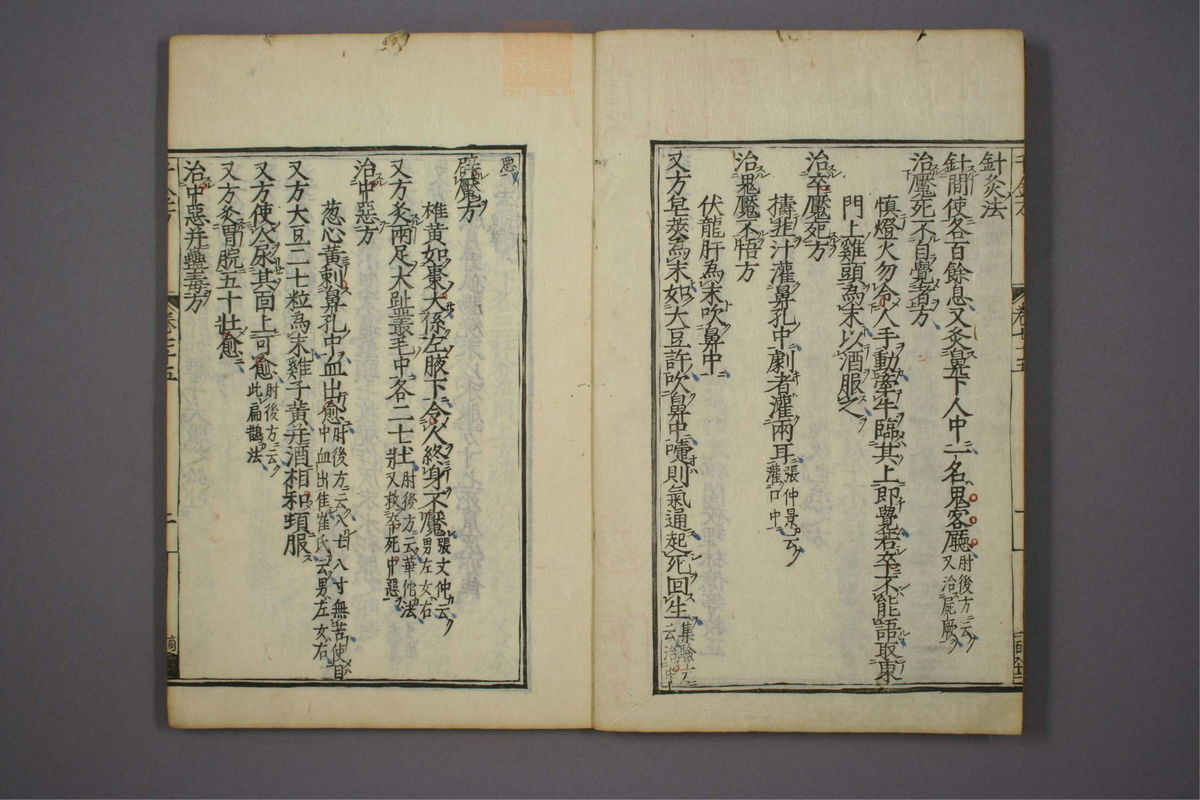 針灸法
針間使各百餘息又灸鼻下人中一名鬼客廳肘後方云又治屍厥
治魘死不自覺者方
慎燈火勿令人手動牽牛臨其上即覺若卒不能語取東
門上雞頭為末以酒服之
治卒魘死方
擣韭汁灌鼻孔中劇者灌兩耳張仲景云灌口中
治鬼魘不悟方
伏龍肝為末吹鼻中
又方皂莢為末如大豆許吹鼻中嚏則氣通起死回生集驗方云治中
惡
辟魘方
雄黃如棗大係左腋下令人終身不魘張文仲云男左女右
又方灸兩足大趾叢毛中各二七壯肘後方云華佗法又救卒死中惡
治中惡方
葱心黃刺鼻孔中血出愈肘後方云入七八寸無苦使目中血出佳崔氏云男左女右
又方大豆二七粒為末雞子黃并酒相和頓服
又方使人尿其面上可愈肘後方云此扁鵲法
又方灸胃脘五十壯愈
治中惡并蠱毒方